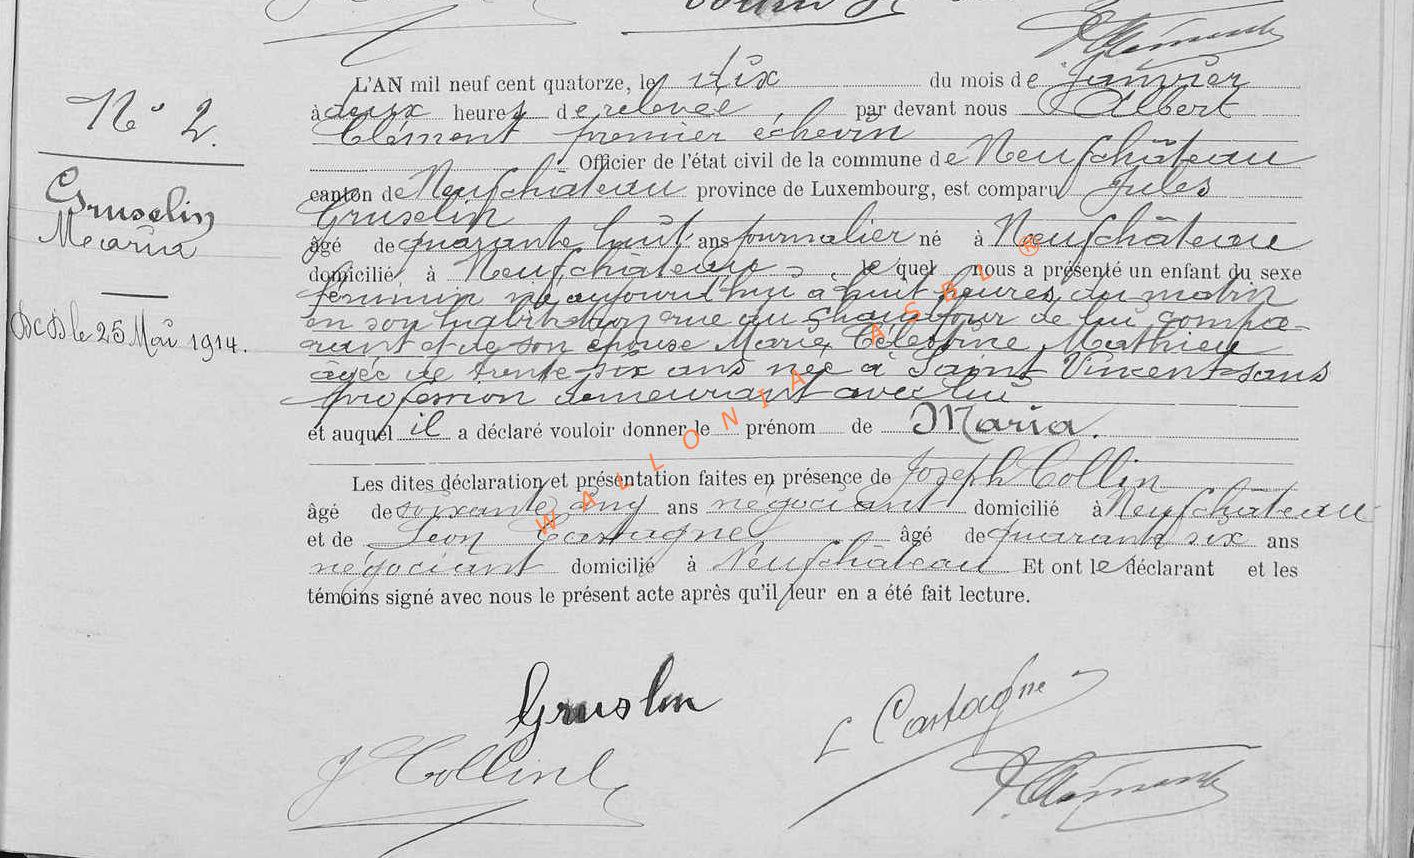 N° 2.
Gruselin
Maria
Déc. le 25 Mai 1914.
L'AN mil neuf cent quatorze, le dix du mois de Janvier
à deux heures de relevée, par devant nous Albert
Clément premier échevin
Officier de l'état civil de la commune de Neufchâteau
canton de Neufchâteau province de Luxembourg, est comparu Jules
Gruselin
âgé de quarante huit ans journalier né à Neufchâteau
domicilié à Neufchâteau, lequel nous a présenté un enfant du sexe
féminin né aujourd'hui à huit heures du matin
en son habitation rue du Chaufour de lui compa-
rant et de son épouse Marie Célestine Mathieu
âgée de trente-six ans née à Saint Vincent sans
profession demeurant avec lui
et auquel il a déclaré vouloir donner le prénom de Maria.
Les dites déclaration et présentation faites en présence de Joseph Collin
âgé de soixante cinq ans négociant domicilié à Neufchâteau
et de Léon Castagne âgé de quarante six ans
négociant domicilié à Neufchâteau Et ont le déclarant et les
témoins signé avec nous le présent acte après qu'il leur en a été fait lecture.
WALLONIA ASBL ®
Gruslin
L Castagne
J Collin
A Clément